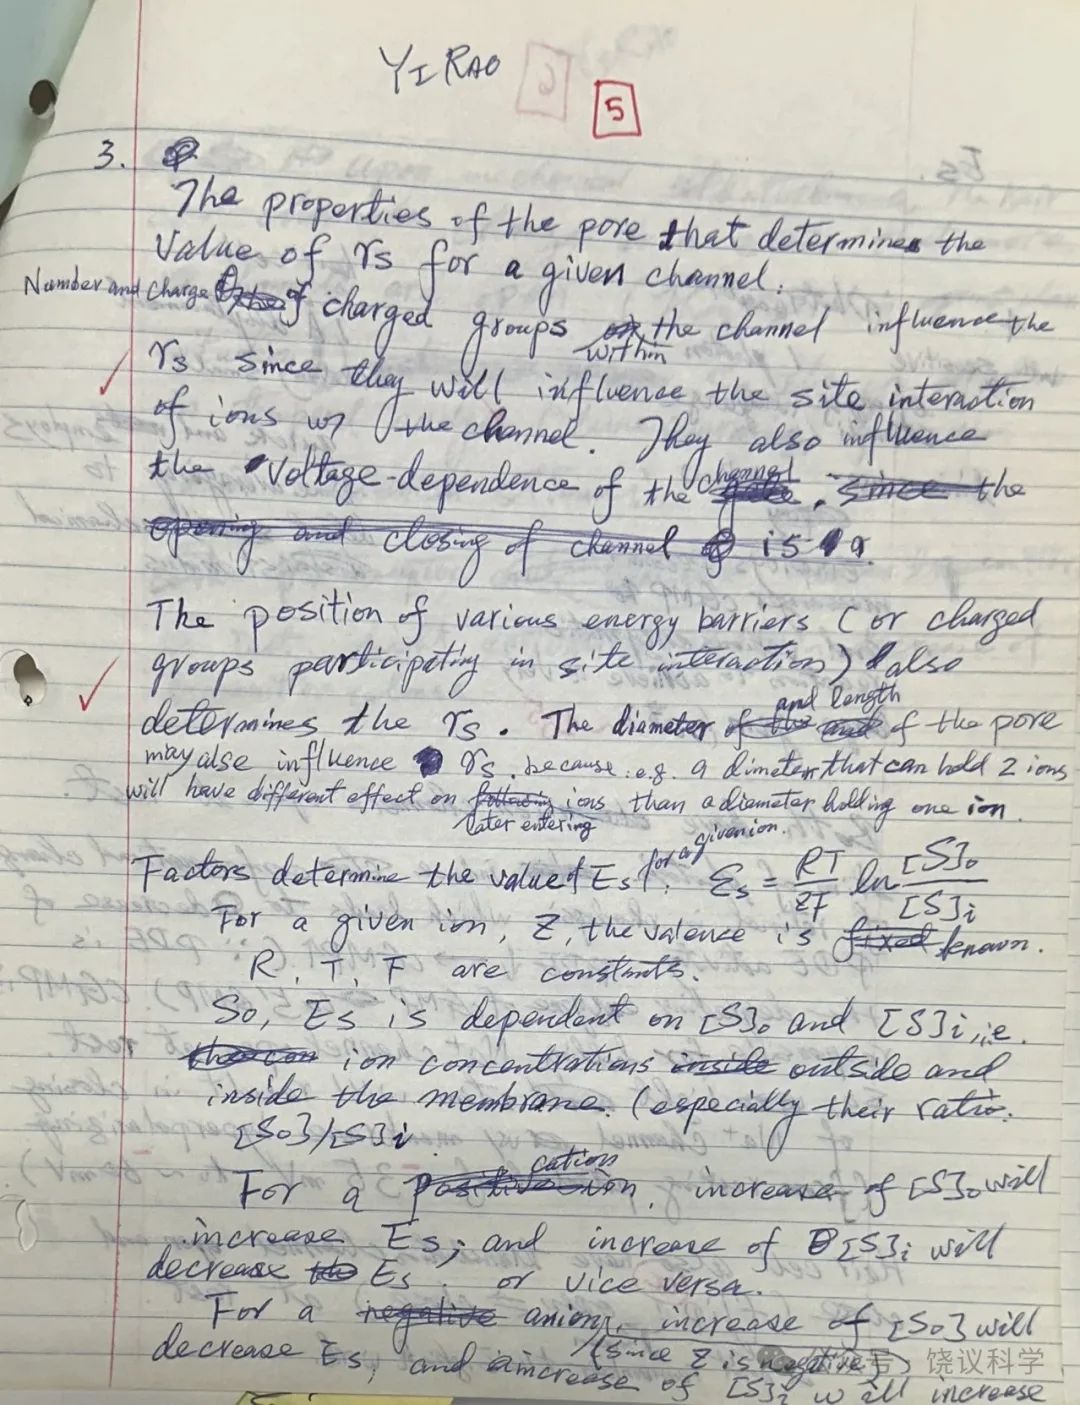 YI RAO
5
3.
The properties of the pore that determines the
value of rs for a given channel.
Number and charge of charged groups within the channel influence the
rs since they will influence the site interaction
of ions w/ the channel. They also influence
the voltage-dependence of the channel. since the
opening and closing of channel is a
The position of various energy barriers (or charged
groups participating in site interaction) also
determines the rs. The diameter and length of the pore
may also influence rs. because. e.g. a dimeter that can hold 2 ions
will have different effect on following ions than a diameter holding one ion.
later entering
Factors determine the value of Es for a given ion. Es = RT/ZF ln [S]o/[S]i
For a given ion, Z, the valence is fixed known.
R, T, F are constants.
So, Es is dependent on [S]o and [S]i, i.e.
the con ion concentrations inside outside and
inside the membrane. (especially their ratio.
[So]/[S]i
For a positive ion cation, increase of [S]o will
increase Es; and increase of [S]i will
decrease the Es. or vice versa.
For a negative anion, increase of [So] will
decrease Es, (since Z is negative)
and increase of [S]i will increase
饶议科学